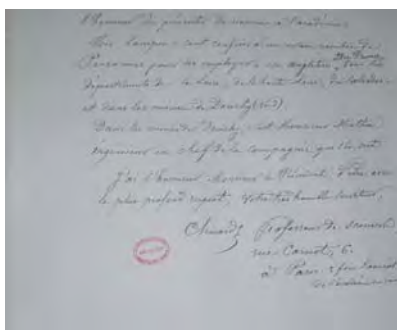 l'honneur de présenter de nouveau à l'académie.
Mes lampes sont confiées à un certain nombre de
Personnes pour les employer en angleterre, Dans les
départements de la Loire, de la haute Loire, du Calvados
et dans les mines de Douchy (nord).
Dans les mines de Douchy, c'est Monsieur Mathieu
ingénieur en chef de la compagnie qui
J'ai l'honneur Monsieur le Président, d'être avec
le plus profond respect, Votre très humble serviteur,
Chuard Professeur de sciences
rue Carnot, 6.
à Paris